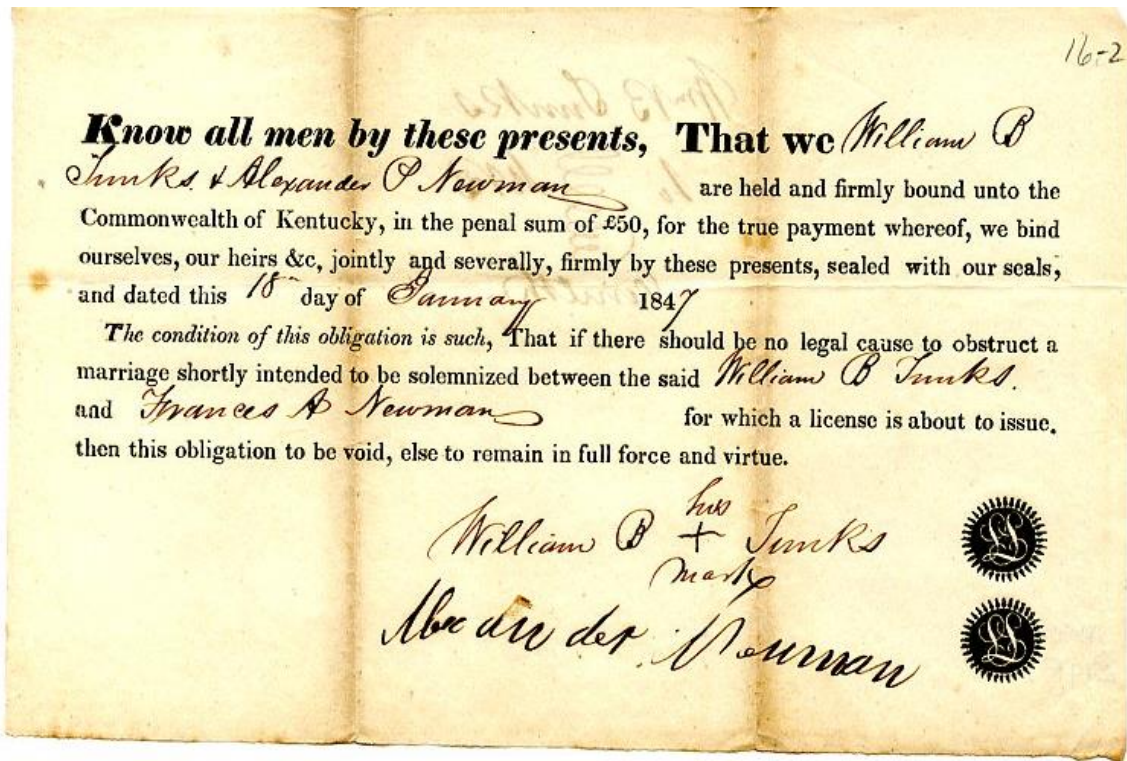 16-2
Know all men by these presents, That we William B
Tunks & Alexander P Newman are held and firmly bound unto the
Commonwealth of Kentucky, in the penal sum of £50, for the true payment whereof, we bind
ourselves, our heirs &c, jointly and severally, firmly by these presents, sealed with our seals,
and dated this 18th day of January 1847
The condition of this obligation is such, That if there should be no legal cause to obstruct a
marriage shortly intended to be solemnized between the said William B Tunks.
and Frances A Newman for which a license is about to issue.
then this obligation to be void, else to remain in full force and virtue.
his
William B + Tunks
mark
Alexander Newman
LS
LS